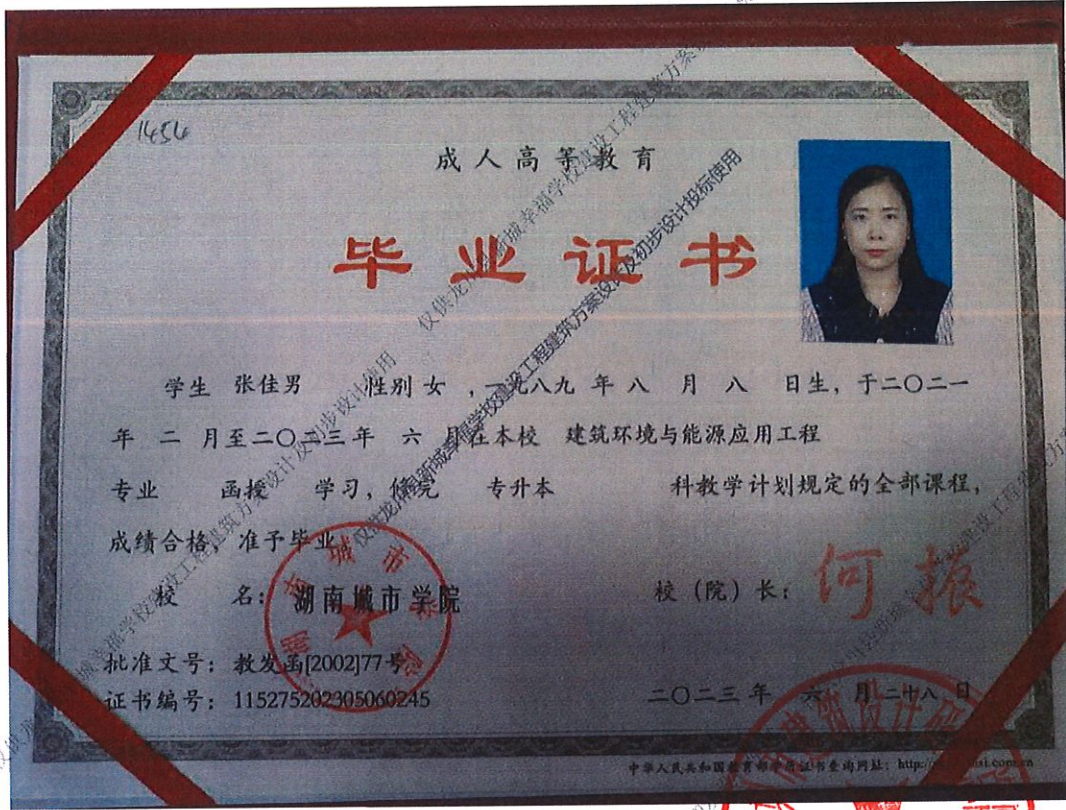 1454
成人高等教育
毕业证书
学生 张佳男 性别 女 ，一九八九 年 八 月 八 日生，于二〇二一
年 二 月至二〇二三年 六 月在本校 建筑环境与能源应用工程
专业 函授 学习，修完 专升本 科教学计划规定的全部课程，
成绩合格，准予毕业
校 名：湖南城市学院
校（院）长：何振
批准文号：教发函[2002]77号
证书编号：115275202305060245
二〇二三 年 六 月 二十八 日
中华人民共和国教育部学历证书查询网址：http:/
湖南城市学院
建筑设计
仅供龙川县新城幸福学校建设工程建筑方案设计及初步设计投标使用